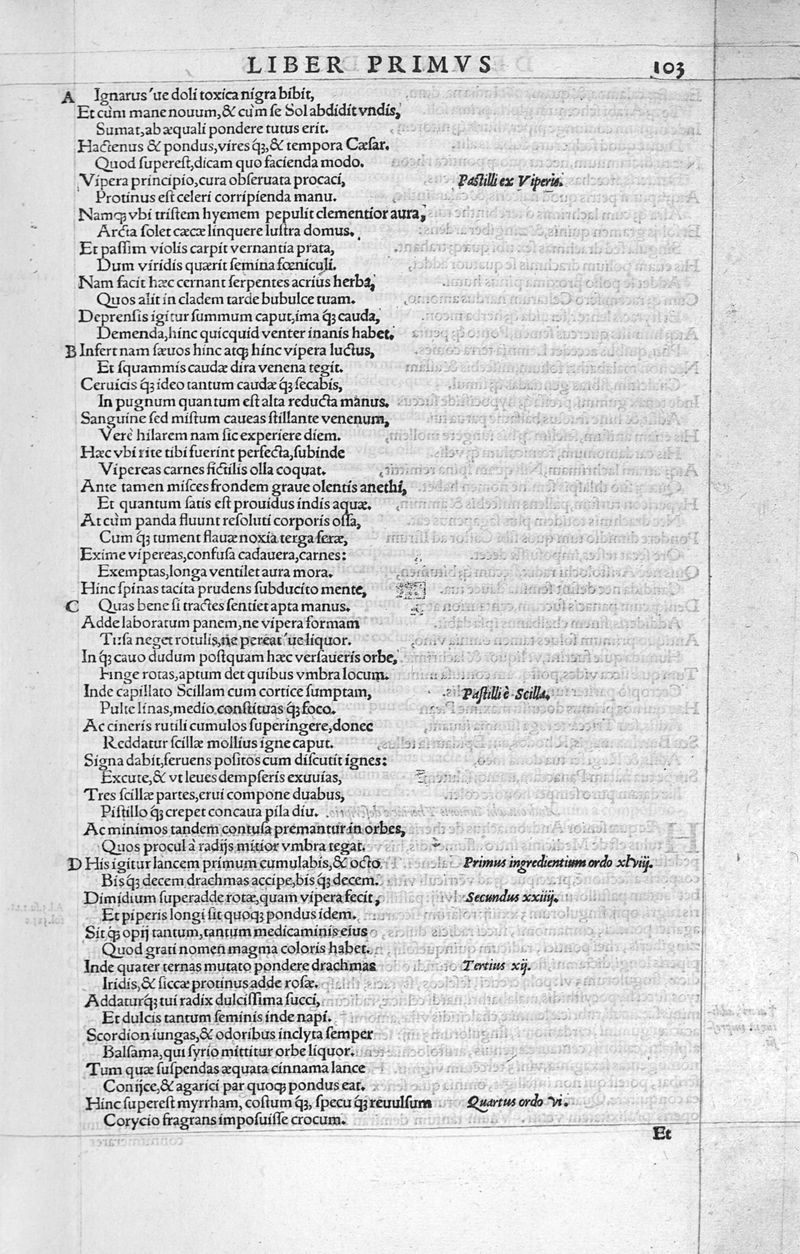 LIBER PRIMVS 103
A Ignarus 'ue doli toxica nigra bibit,
Et cùm mane nouum,& cùm se Sol abdidit vndis,
Sumat,ab æquali pondere tutus erit.
Hactenus & pondus,vires q́;,& tempora Cæsar.
Quod superest,dicam quo facienda modo.
Vipera principio,cura obseruata procaci, Pastilli ex Viperis.
Protinus est celeri corripienda manu.
Namq; vbi tristem hyemem pepulit clementior aura,
Arcta solet cæcæ linquere lustra domus.
Et passim violis carpit vernantia prata,
Dum viridis quærit semina fœniculi.
Nam facit hæc cernant serpentes acrius herba,
Quos alit in cladem tarde bubulce tuam.
Deprensis igitur summum caput,ima q́; cauda,
Demenda,hinc quicquid venter inanis habet.
B Infert nam sæuos hinc atq; hinc vipera luctus,
Et squammis caudæ dira venena tegit.
Ceruicis q́; ideo tantum caudæ q́; secabis,
In pugnum quantum est alta reducta manus.
Sanguine sed mistum caueas stillante venenum,
Verè hilarem nam sic experiere diem.
Hæc vbi rite tibi fuerint perfecta,subinde
Vipereas carnes fictilis olla coquat.
Ante tamen misces frondem graue olentis anethi,
Et quantum satis est prouidus indis aquæ.
At cùm panda fluunt resoluti corporis ossa,
Cum q́; tument flauæ noxia terga feræ,
Exime vipereas,confusa cadauera,carnes:
Exemptas,longa ventilet aura mora.
Hinc spinas tacita prudens subducito mente,
C Quas bene si tractes sentiet apta manus.
Adde laboratum panem,ne vipera formam
Tusa neget rotulis,ne pereat 'ue liquor.
In q́; cauo dudum postquam hæc versaueris orbe,
Finge rotas,aptum det quibus vmbra locum.
Inde capillato Scillam cum cortice sumptam, Pastilli è Scilla.
Pulte linas,medio constituas q́; foco.
Ac cineris rutili cumulos superingere,donec
Reddatur scillæ mollius igne caput.
Signa dabit,feruens positos cum discutit ignes:
Excute,& vt leues dempseris exuuias,
Tres scillæ partes,erui compone duabus,
Pistillo q́; crepet concaua pila diu.
Ac minimos tandem contusa premantur in orbes,
Quos procul à radijs mitior vmbra tegat.
D His igitur lancem primum cumulabis,& octo Primus ingredientium ordo xlviij.
Bis q́; decem drachmas accipe,bis q́; decem.
Dimidium superadde rotæ,quam vipera fecit, Secundus xxiiij.
Et piperis longi sit quoq; pondus idem.
Sit q́; opij tantum,tantum medicaminis eius
Quod grati nomen magma coloris habet.
Inde quater ternas mutato pondere drachmas Tertius xij.
Iridis,& siccæ protinus adde rosæ.
Addaturq́; tui radix dulcissima succi,
Et dulcis tantum seminis inde napi.
Scordion iungas,& odoribus inclyta semper
Balsama,qui syrio mittitur orbe liquor.
Tum quæ suspendas æquata cinnama lance
Conijce,& agarici par quoq; pondus eat.
Hinc superest myrrham, costum q́;, specu q́; reuulsum Quartus ordo vi.
Corycio fragrans imposuisse crocum.
Et